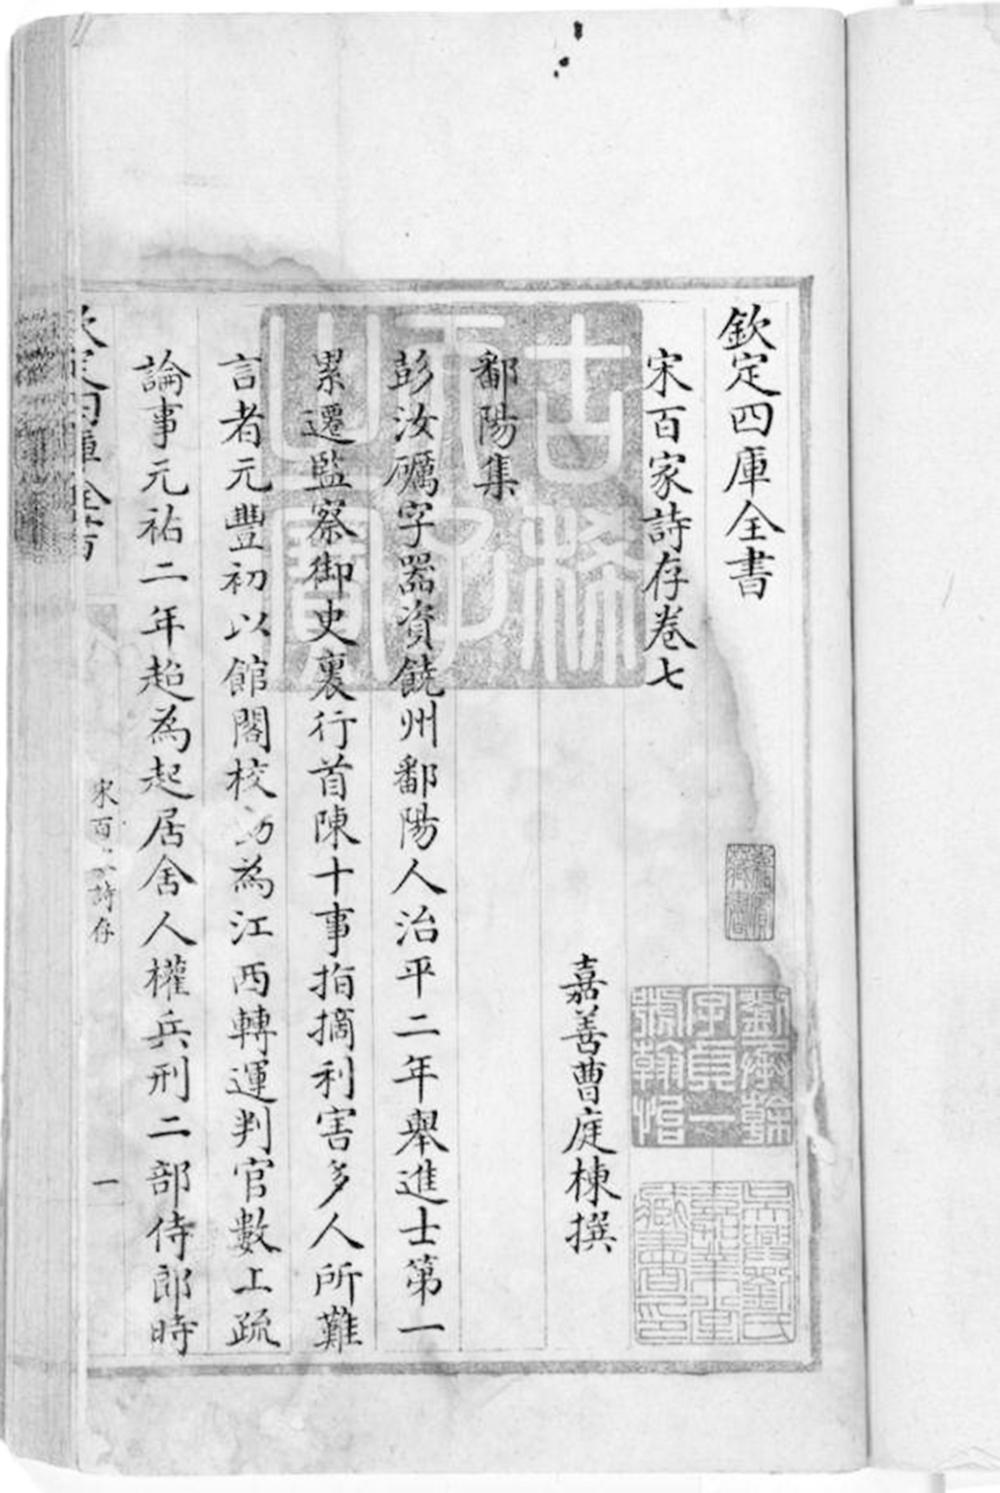 欽定四庫全書
宋百家詩存卷七
嘉善曹庭棟撰
鄱陽集
彭汝礪字器資饒州鄱陽人治平二年舉進士第一
累遷監察御史裏行首陳十事指摘利害多人所難
言者元豐初以館閣校為江西轉運判官數上疏
論事元祐二年超為起居舍人權兵刑二部侍郎時
宋百詩存
一
古稀天子之寶
劉承幹字貞一號翰怡
吳興劉氏嘉業堂藏書印